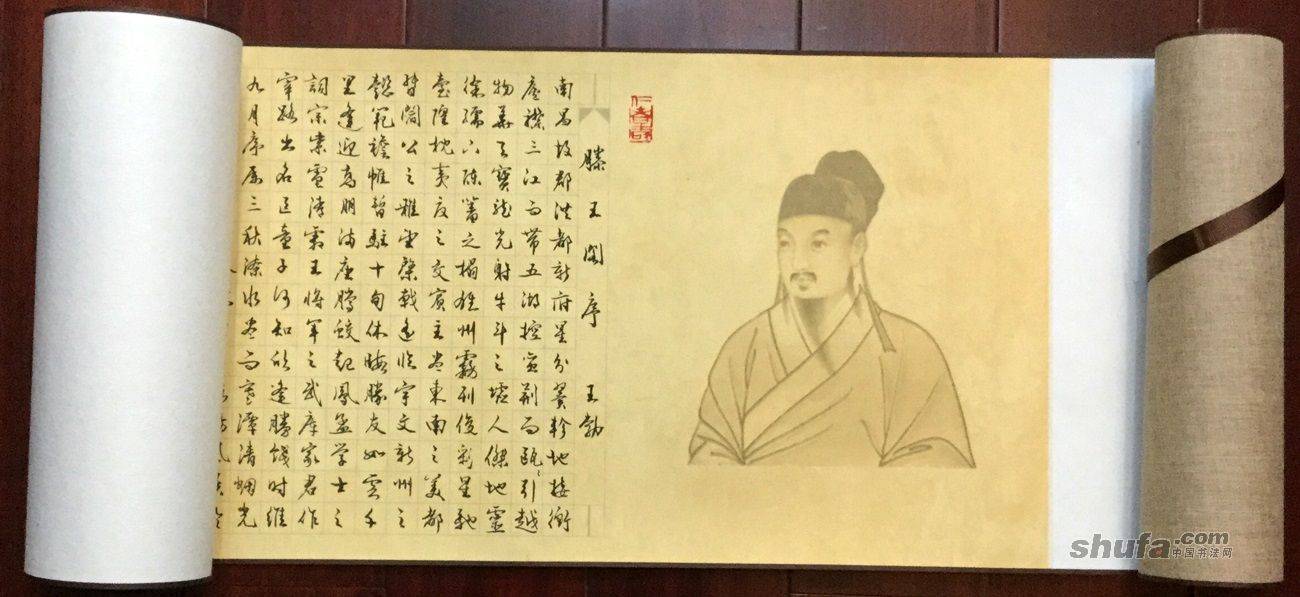 滕王阁序 王勃
南昌故郡洪都新府星分翼轸地接衡
庐襟三江而带五湖控蛮荆而瓯引越
物華天寶龙光射牛斗之墟人傑地靈
徐孺下陈蕃之榻雄州霧列俊彩星馳
台隍枕夷夏之交賓主尽東南之美都
督阎公之雅望棨戟遥临宇文新州之
懿範襜帷暫駐十旬休暇勝友如雲千
里逢迎高朋满座腾蛟起鳳孟学士之
詞宗紫電清霜王将军之武库家君作
宰路出名區童子何知躬逢勝餞时維
九月序属三秋潦水尽而寒潭清烟光
shufa.com
中国书法网